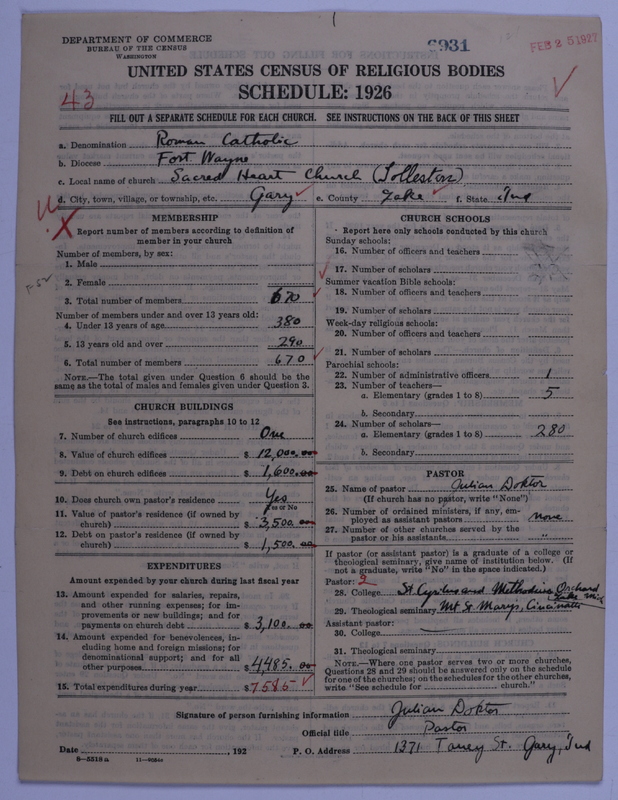 DEPARTMENT OF COMMERCE
BUREAU OF THE CENSUS
WASHINGTON
6931
FEB 25 1927
UNITED STATES CENSUS OF RELIGIOUS BODIES
SCHEDULE: 1926
43
FILL OUT A SEPARATE SCHEDULE FOR EACH CHURCH. SEE INSTRUCTIONS ON THE BACK OF THIS SHEET
a. Denomination Roman Catholic
b. Diocese Fort Wayne
c. Local name of church Sacred Heart Church (Tolleston)
d. City, town, village, or township, etc. Gary e. County Lake f. State Ind
MEMBERSHIP
Report number of members according to definition of
member in your church
Number of members, by sex:
1. Male
2. Female
3. Total number of members 670
Number of members under and over 13 years old:
4. Under 13 years of age 380
5. 13 years old and over 290
6. Total number of members 670
NOTE.—The total given under Question 6 should be the
same as the total of males and females given under Question 3.
CHURCH BUILDINGS
See instructions, paragraphs 10 to 12
7. Number of church edifices One
8. Value of church edifices $ 12,000.00
9. Debt on church edifices $ 1,600.00
10. Does church own pastor's residence Yes
Yes or No
11. Value of pastor's residence (if owned by
church) $ 3,500.00
12. Debt on pastor's residence (if owned by
church) $ 1,500.00
EXPENDITURES
Amount expended by your church during last fiscal year
13. Amount expended for salaries, repairs,
and other running expenses; for im-
provements or new buildings; and for
payments on church debt $ 3,100.00
14. Amount expended for benevolences, in-
cluding home and foreign missions; for
denominational support; and for all
other purposes $ 4485.00
15. Total expenditures during year $ 7585
CHURCH SCHOOLS
Report here only schools conducted by this church
Sunday schools:
16. Number of officers and teachers
17. Number of scholars
Summer vacation Bible schools:
18. Number of officers and teachers
19. Number of scholars
Week-day religious schools:
20. Number of officers and teachers
21. Number of scholars
Parochial schools:
22. Number of administrative officers 1
23. Number of teachers—
a. Elementary (grades 1 to 8) 5
b. Secondary
24. Number of scholars—
a. Elementary (grades 1 to 8) 280
b. Secondary
PASTOR
25. Name of pastor Julian Doktor
(If church has no pastor, write "None")
26. Number of ordained ministers, if any, em-
ployed as assistant pastors none
27. Number of other churches served by the
pastor or his assistants "
If pastor (or assistant pastor) is a graduate of a college or
theological seminary, give name of institution below. (If
not a graduate, write "No" in the space indicated.)
Pastor: 2
28. College St Cyrilus and Methodius Orchard
Lake Mich
29. Theological seminary Mt St Marys, Cincinnati
Assistant pastor:
30. College
31. Theological seminary
NOTE.—Where one pastor serves two or more churches,
Questions 28 and 29 should be answered only on the schedule
for one of the churches; on the schedules for the other churches,
write "See schedule for church."
Signature of person furnishing information Julian Doktor
Official title Pastor
Date , 192 P. O. Address 1371 Taney St. Gary, Ind
8—5518a 11—9054a